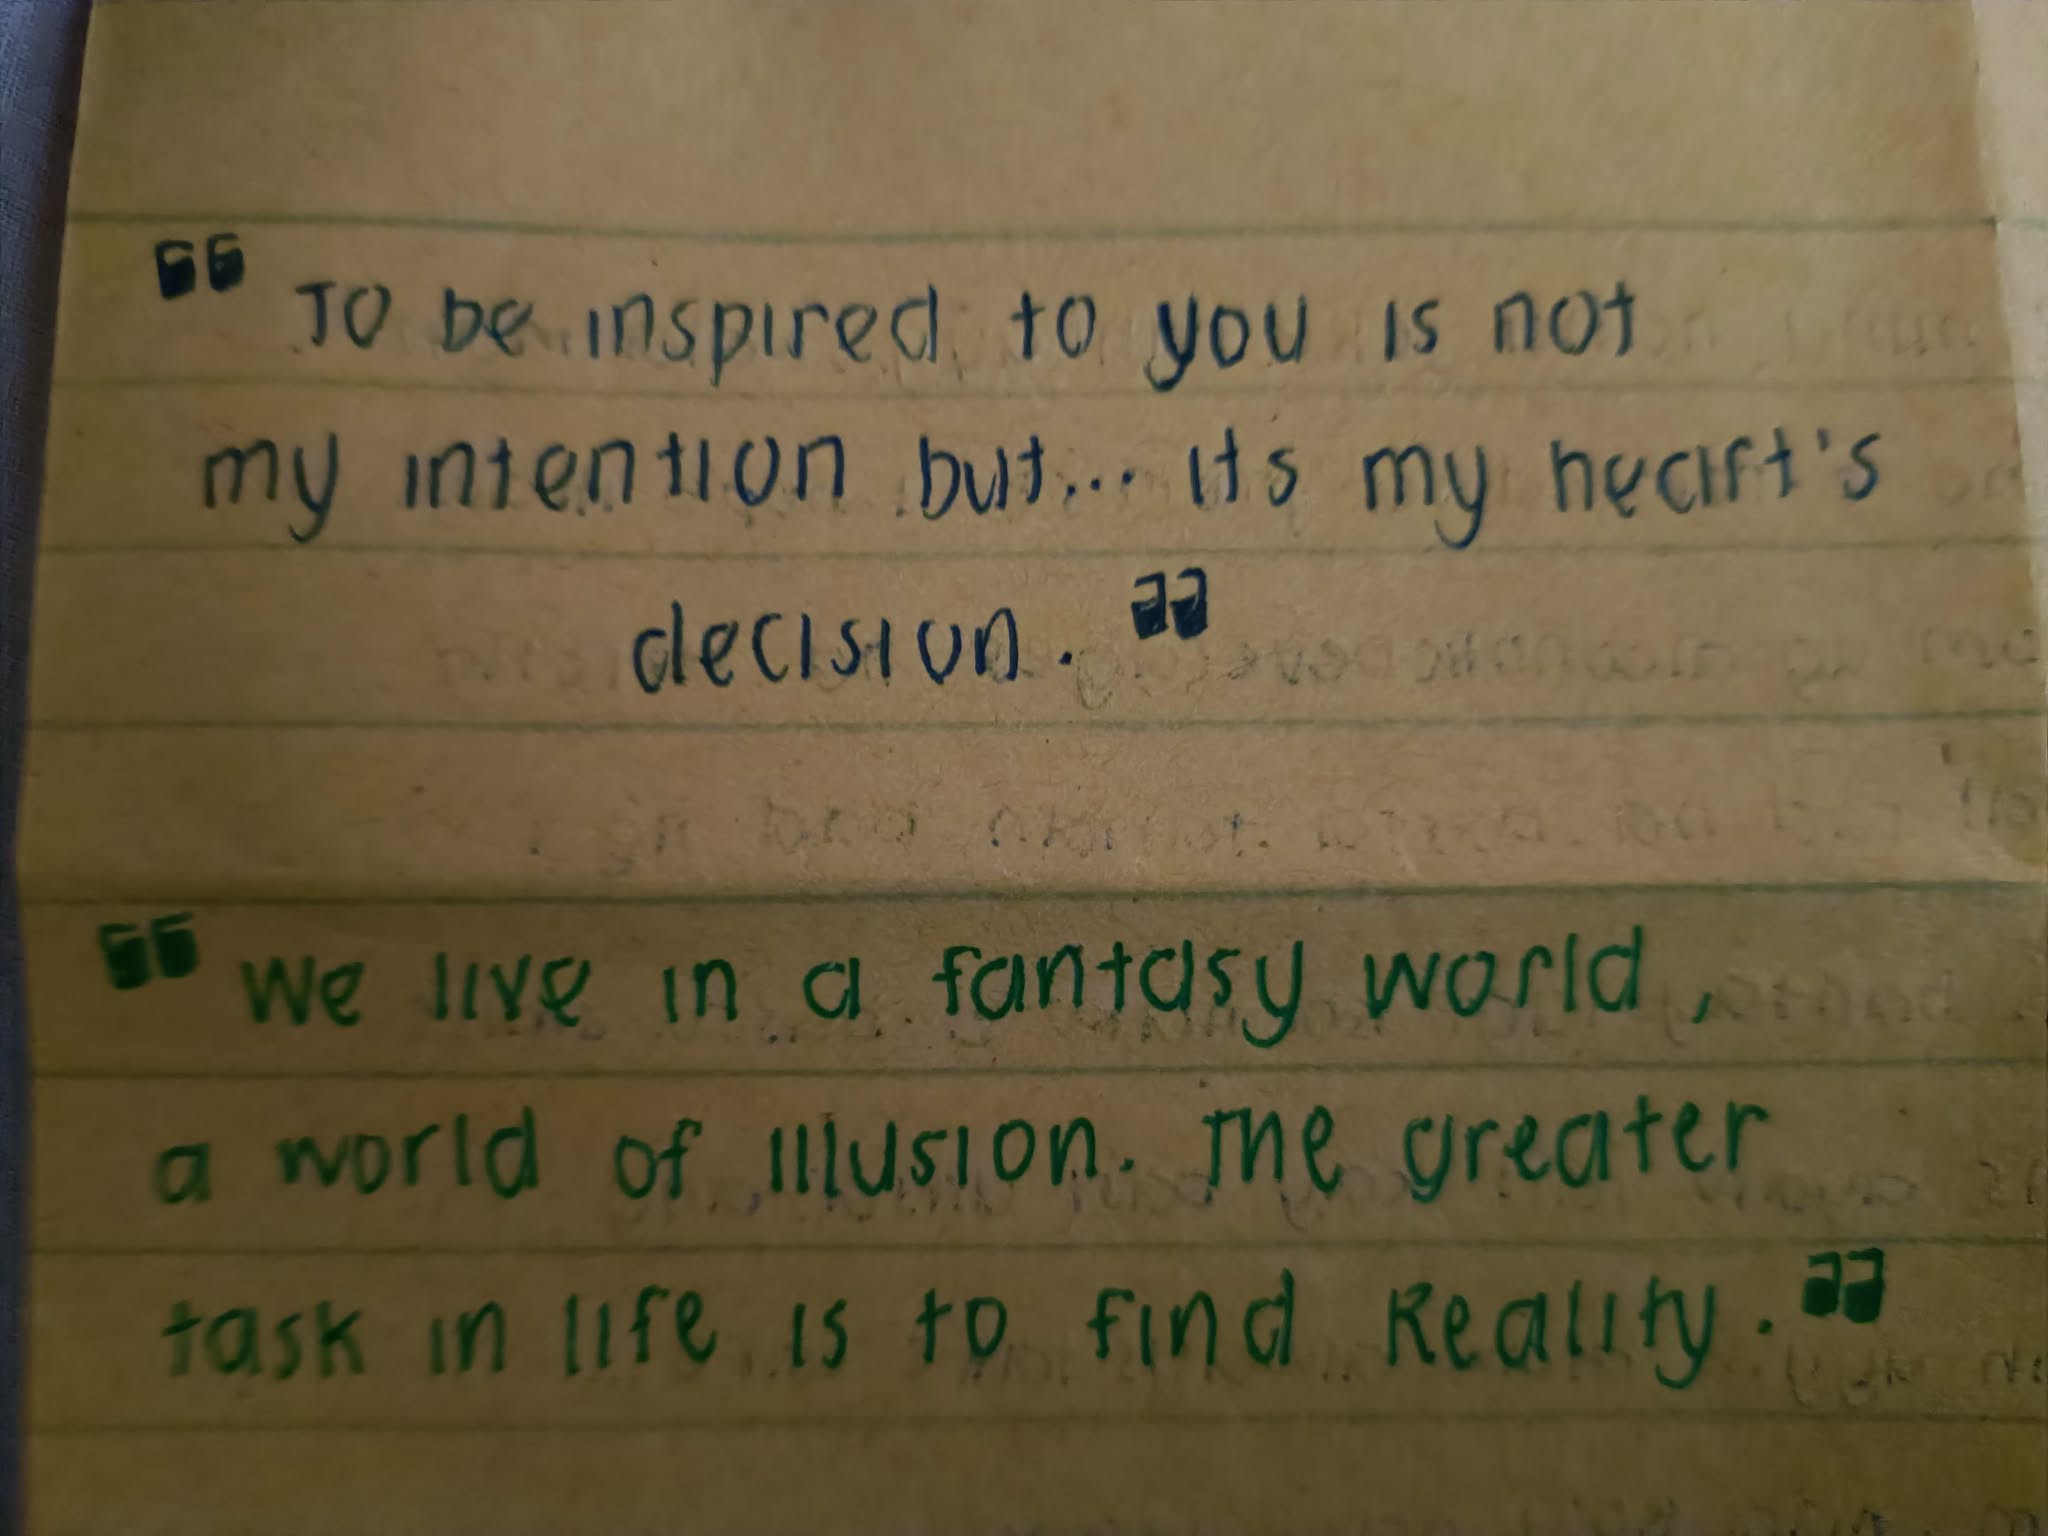 “ To be inspired to you is not
my intention but... its my heart's
decision. ”
“ We live in a fantasy world,
a world of illusion. The greater
task in life is to find Reality. ”